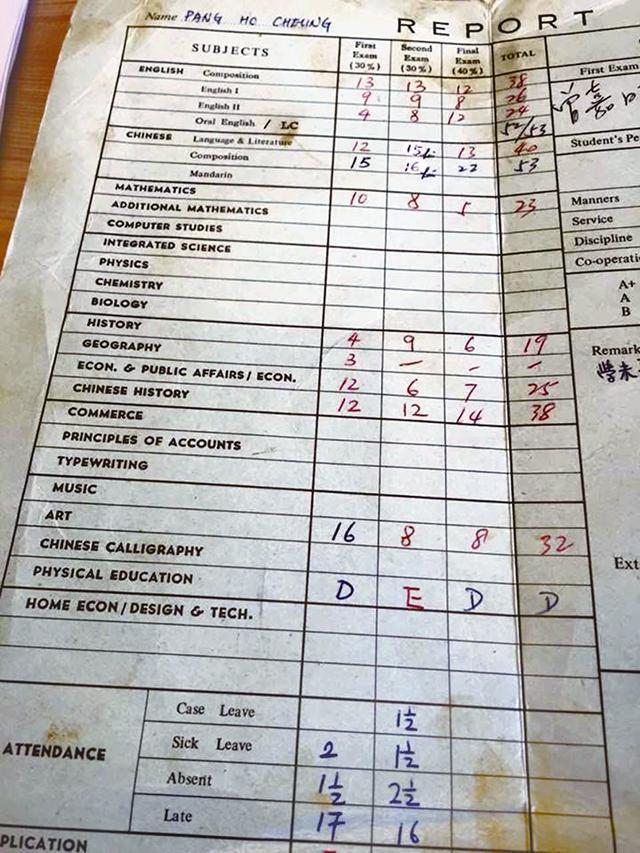 Name PANG HO CHEUNG
REPORT
SUBJECTS First Exam (30%) Second Exam (30%) Final Exam (40%) TOTAL First Exam
ENGLISH Composition 13 13 12 38
English I 9 9 8 26
English II 4 8 12 24
Oral English / LC 52/53
CHINESE Language & Literature 12 15 13 40 Student's Pe
Composition 15 16 22 53
Mandarin
MATHEMATICS 10 8 5 23 Manners
ADDITIONAL MATHEMATICS Service
COMPUTER STUDIES Discipline
INTEGRATED SCIENCE Co-operati
PHYSICS A+
CHEMISTRY A
BIOLOGY B
HISTORY 4 9 6 19 Remark
GEOGRAPHY 3 – – –
ECON. & PUBLIC AFFAIRS/ ECON. 12 6 7 25
CHINESE HISTORY 12 12 14 38
COMMERCE
PRINCIPLES OF ACCOUNTS
TYPEWRITING
MUSIC
ART 16 8 8 32
CHINESE CALLIGRAPHY Ext
PHYSICAL EDUCATION D E D D
HOME ECON/DESIGN & TECH.
ATTENDANCE
Case Leave 1½
Sick Leave 2 1½
Absent 1½ 2½
Late 17 16
PLICATION